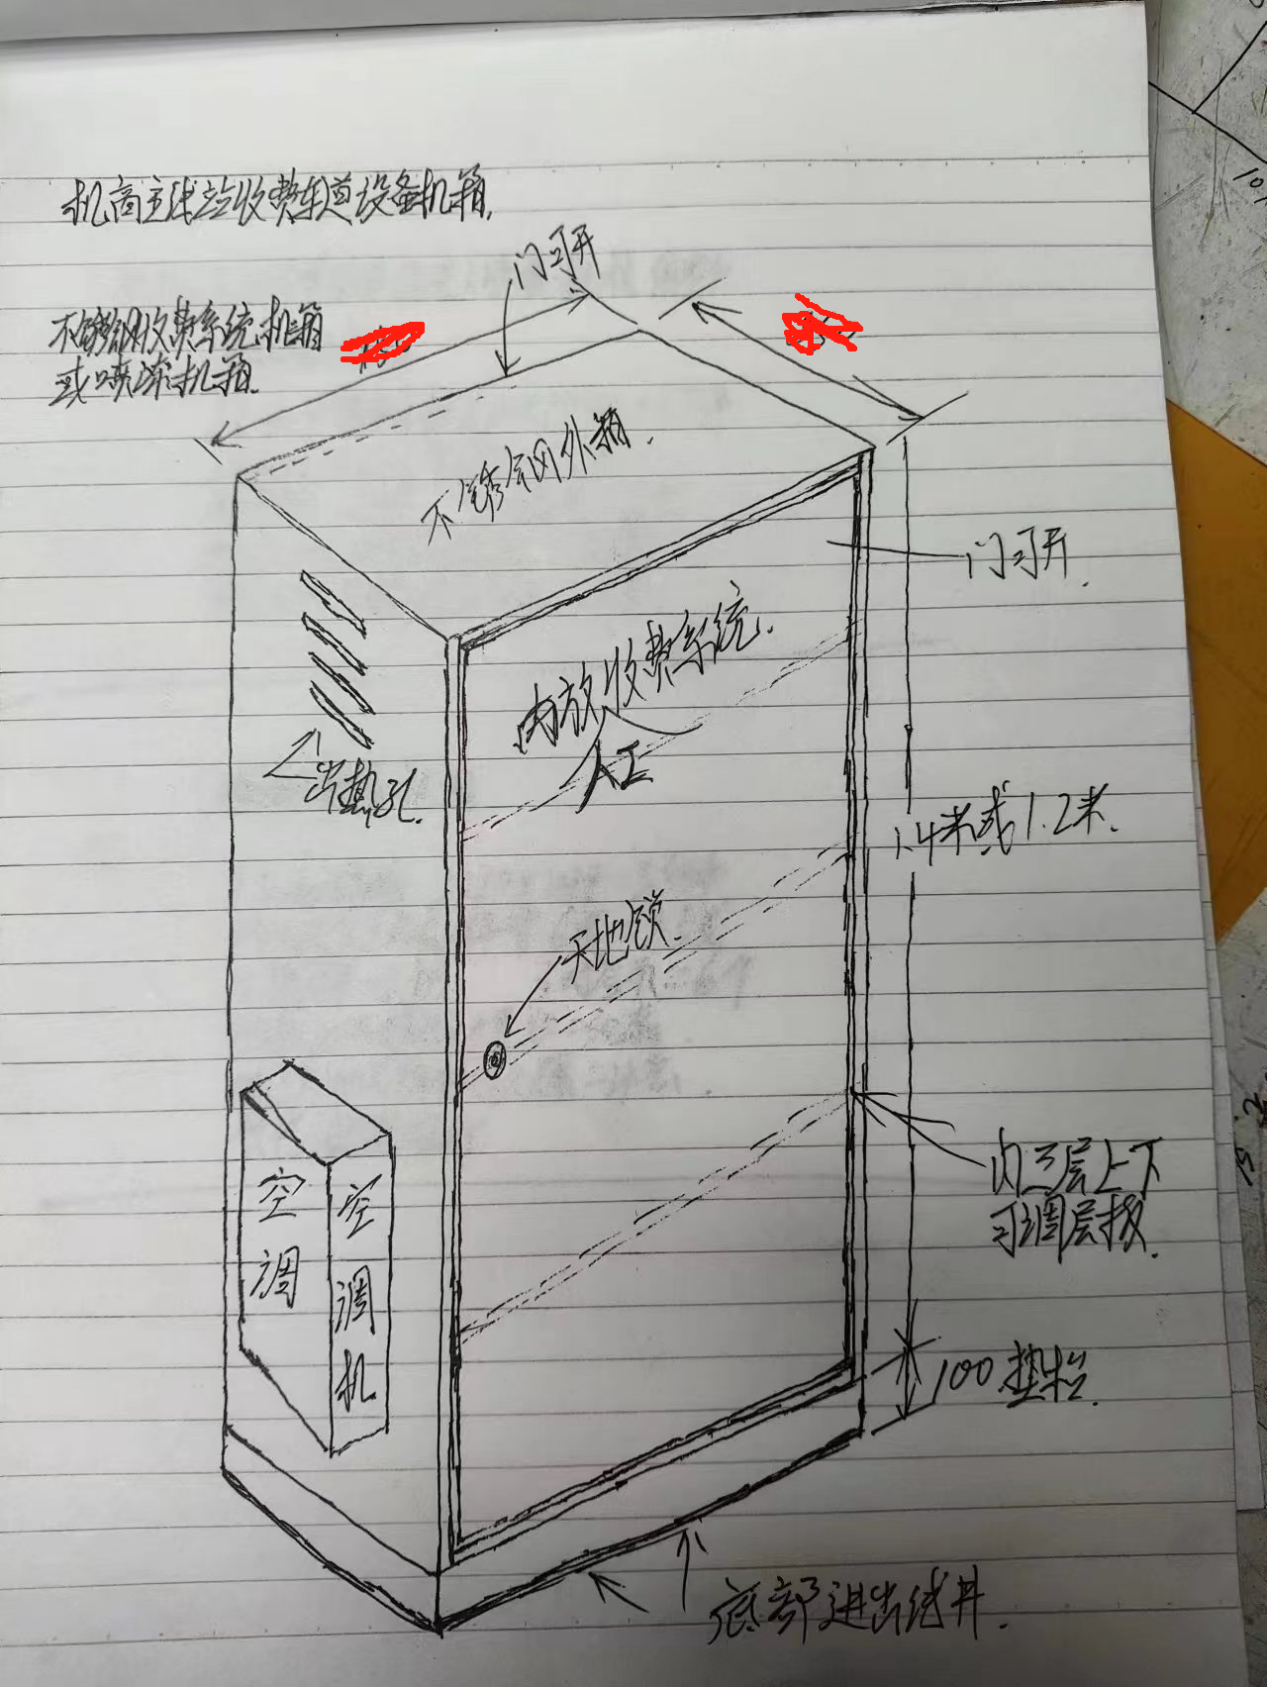 机高主线站收费车道设备机箱.
门可开
不锈钢收费系统机箱
或喷漆机箱.
不锈钢外箱.
门可开.
内放收费系统.
人工
出热孔.
1.4米或1.2米.
天地锁.
内三层上下
可调层板.
空调
空调机
100垫
底部进出线井.